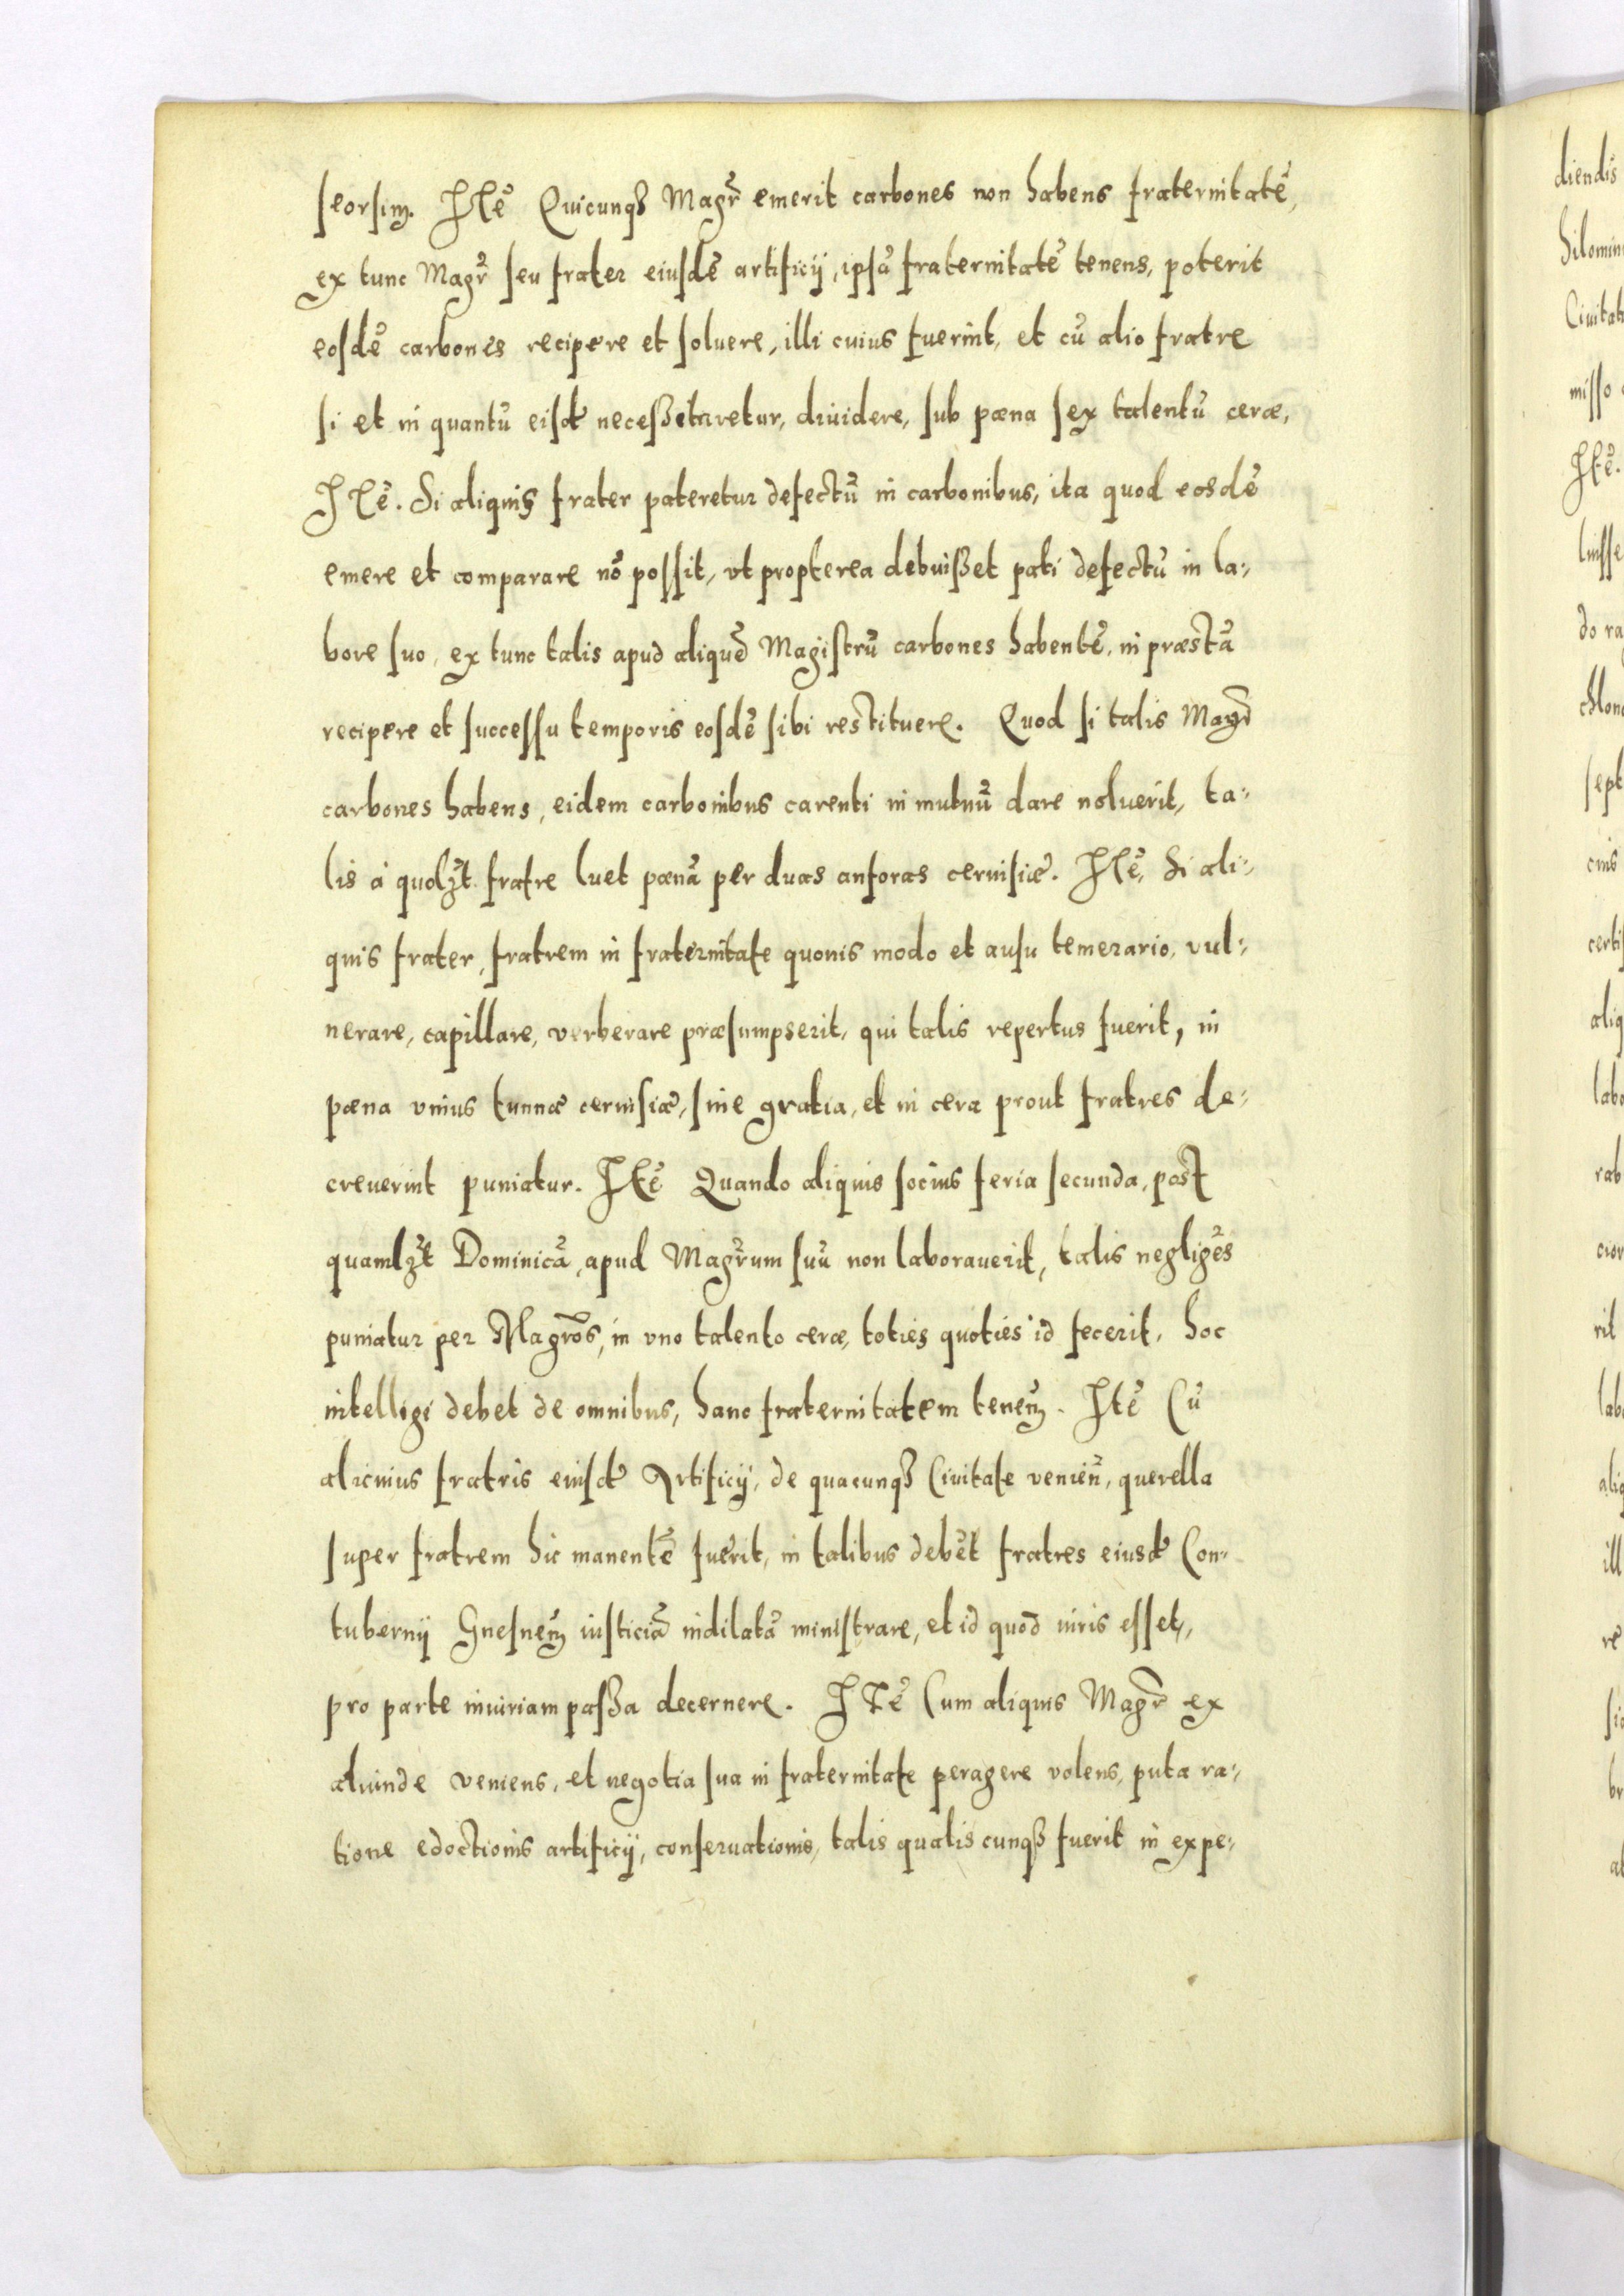 seorsim. Itē Quicunqꝫ Magr̄ emerit carbones non habens fraternitatē,
ex tunc Magr̄ seu frater eiusdē artificij, ipsā fraternitatē tenens, poterit
eosdē carbones recipere et soluere, illi cuius fuerint, et cū alio fratre
si et in quantū eisd̄ necessitaretur, diuidere, sub pœna sex talentū ceræ,
Itē. Si aliquis frater pateretur defectū in carbonibus, ita quod eosdē
emere et comparare nō possit, vt propterea debuisset pati defectū in la-
bore suo, ex tunc talis apud aliquē Magistrū carbones habentē, in præstā
recipere et successu temporis eosdē sibi restituere. Quod si talis Magr̄
carbones habens, eidem carbonibus carenti in mutuū dare noluerit, ta-
lis à quolꝫt fratre luet pœnā per duas anforas ceruisiæ. Itē, Si ali-
quis frater, fratrem in fraternitate quouis modo et ausu temerario, vul-
nerare, capillare, verberare præsumpserit, qui talis repertus fuerit, in
pœna vnius tunnæ ceruisiæ, sine gratia, et in cera prout fratres de-
creuerint puniatur. Itē Quando aliquis socius feria secunda, post
quamlꝫt Dominicā, apud Magr̄um suū non laborauerit, talis negligēs
puniatur per Magr̄os, in vno talento ceræ, toties quoties id fecerit, hoc
intelligi debet de omnibus, hanc fraternitatem tenen̄. Itē Cū
alicuius fratris eiusd̄ Artificij, de quacunqꝫ Ciuitate venien̄, querella
super fratrem hic manentē fuerit, in talibus debēt fratres eiusd̄ Con-
tubernij Gnesnen̄ iusticiā indilatā ministrare, et id quod iuris esset,
pro parte iniuriam passa decernere. Itē Cum aliquis Magr̄ ex
aliunde veniens, et negotia sua in fraternitate peragere volens, puta ra-
tione edoctionis artificij, conseruationis, talis qualiscunqꝫ fuerit in expe-